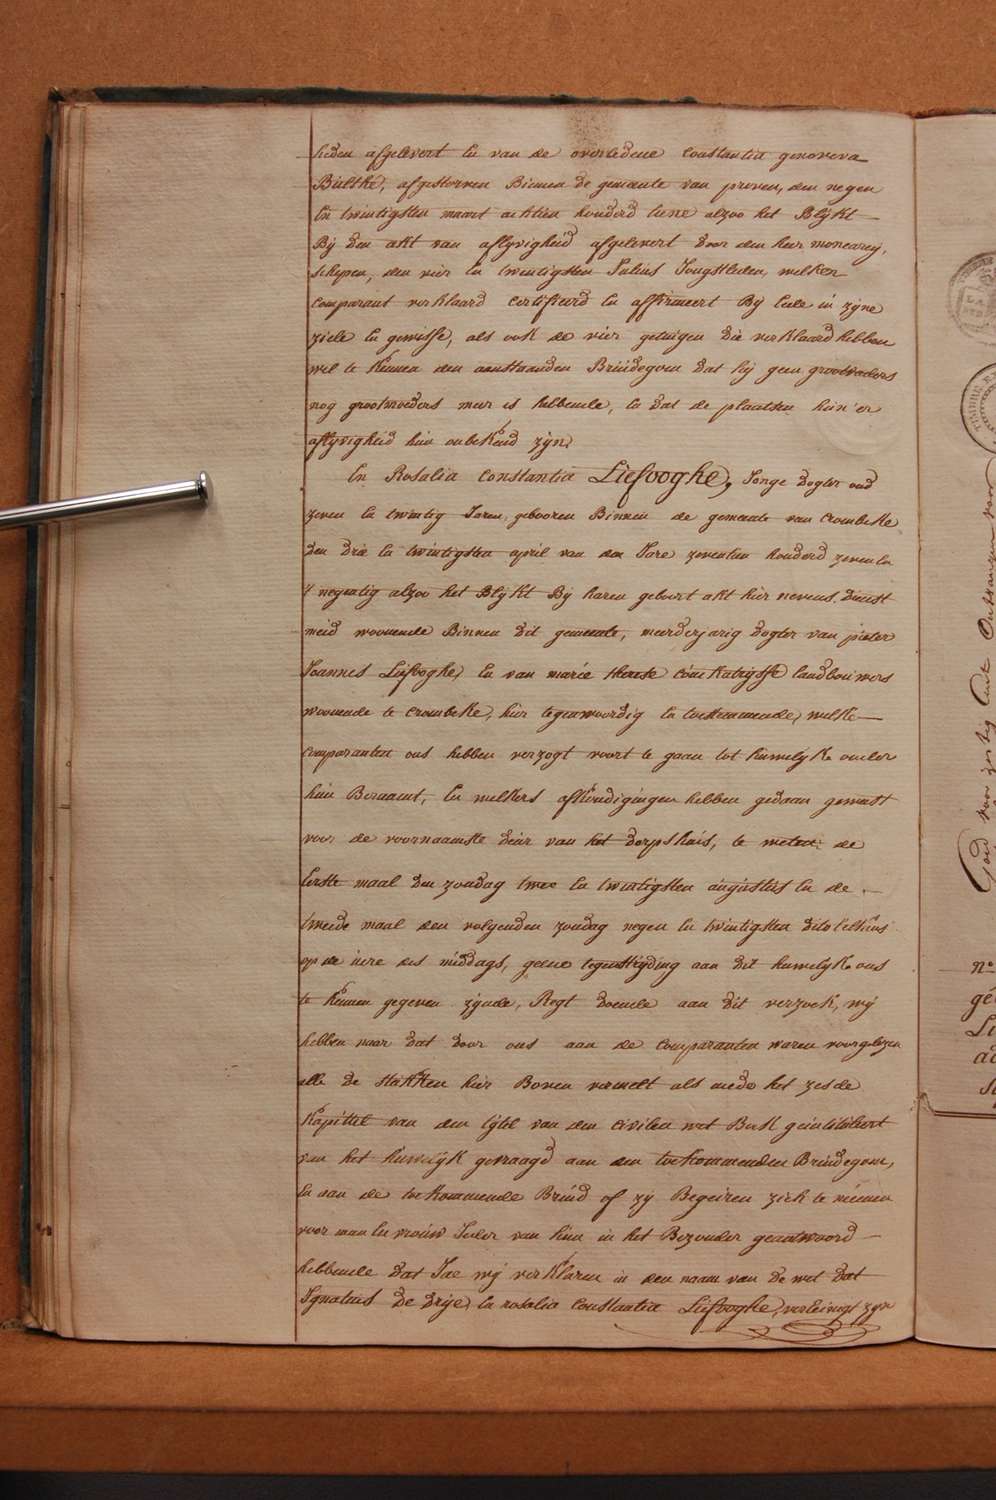 heden afgelevert En van de overledene constantia genoveva
Bulthé, afgestorven Binnen de gemeente van proven, den negen
En twintigsten maart achtien honderd eene alzoo het Blijkt
Bij den akt van aflyvigheid afgelevert door den heer moncarey,
schepen, den vier En twintigsten Julius Jongstleden, welken
comparant verklaard certifieerd En affirmeert By Eede in zijne
ziele En gewisse, als ook de vier getuigen die verklaard hebben
wel te Kennen den aenstaanden Bruidegom dat hij geen grootvaders
nog grootmoeders meer is hebbende, En dat de plaetsen hun'er
aflyvigheid hun onbekend zijn,
En Rosalia Constantia Liefooghe, Jonge dogter oud
zeven En twintig Jaren, gebooren Binnen de gemeente van Crombeke
den drie En twintigsten april van den Jare zeventien honderd zeven En
't negentig alzoo het Blijkt By haren geboort akt hier nevens. dienst
meid woonende Binnen dit gemeente, meerderjarig dogter van pieter
Joannes Liefooghe, En van marie therese Catrysse landbouwers
woonende te Crombeke, hier tegenwoordig En toestemmende, welke
comparanten ons hebben verzogt voort te gaan tot huwelyk onder
hun Beraamt, En welkers afkondigingen hebben gedaan geweest
voor de voornaamste deur van het dorpshuis, te weten: de
Eerste maal den zondag twee En twintigsten augustus En de
tweede maal den volgenden zondag negen En twintigsten dito telkens
op de uere des middags, geene tegenstryding aan dit huwelyk ons
te Kennen gegeven zijnde, Regt doende aan dit verzoek, wij
hebben naar dat door ons aan de comparanten waren voorgelezen
alle de stukken hier Boven vermelt als mede het zesde
Kapittel van den tytel van den civilen wet Boek geintituleert
van het huwelyk gevraagd aan den toekommenden Bruidegom,
En aan de toekommende Bruid of zy Begeiren zich te nemen
voor man En vrouw Jeder van hun in het Bezonder geantwoord
hebbende dat Jae wij verklaren in den naam van de wet dat
Ignatius De Drije, En rosalia Constantia Liefooghe, vereinigt zijn